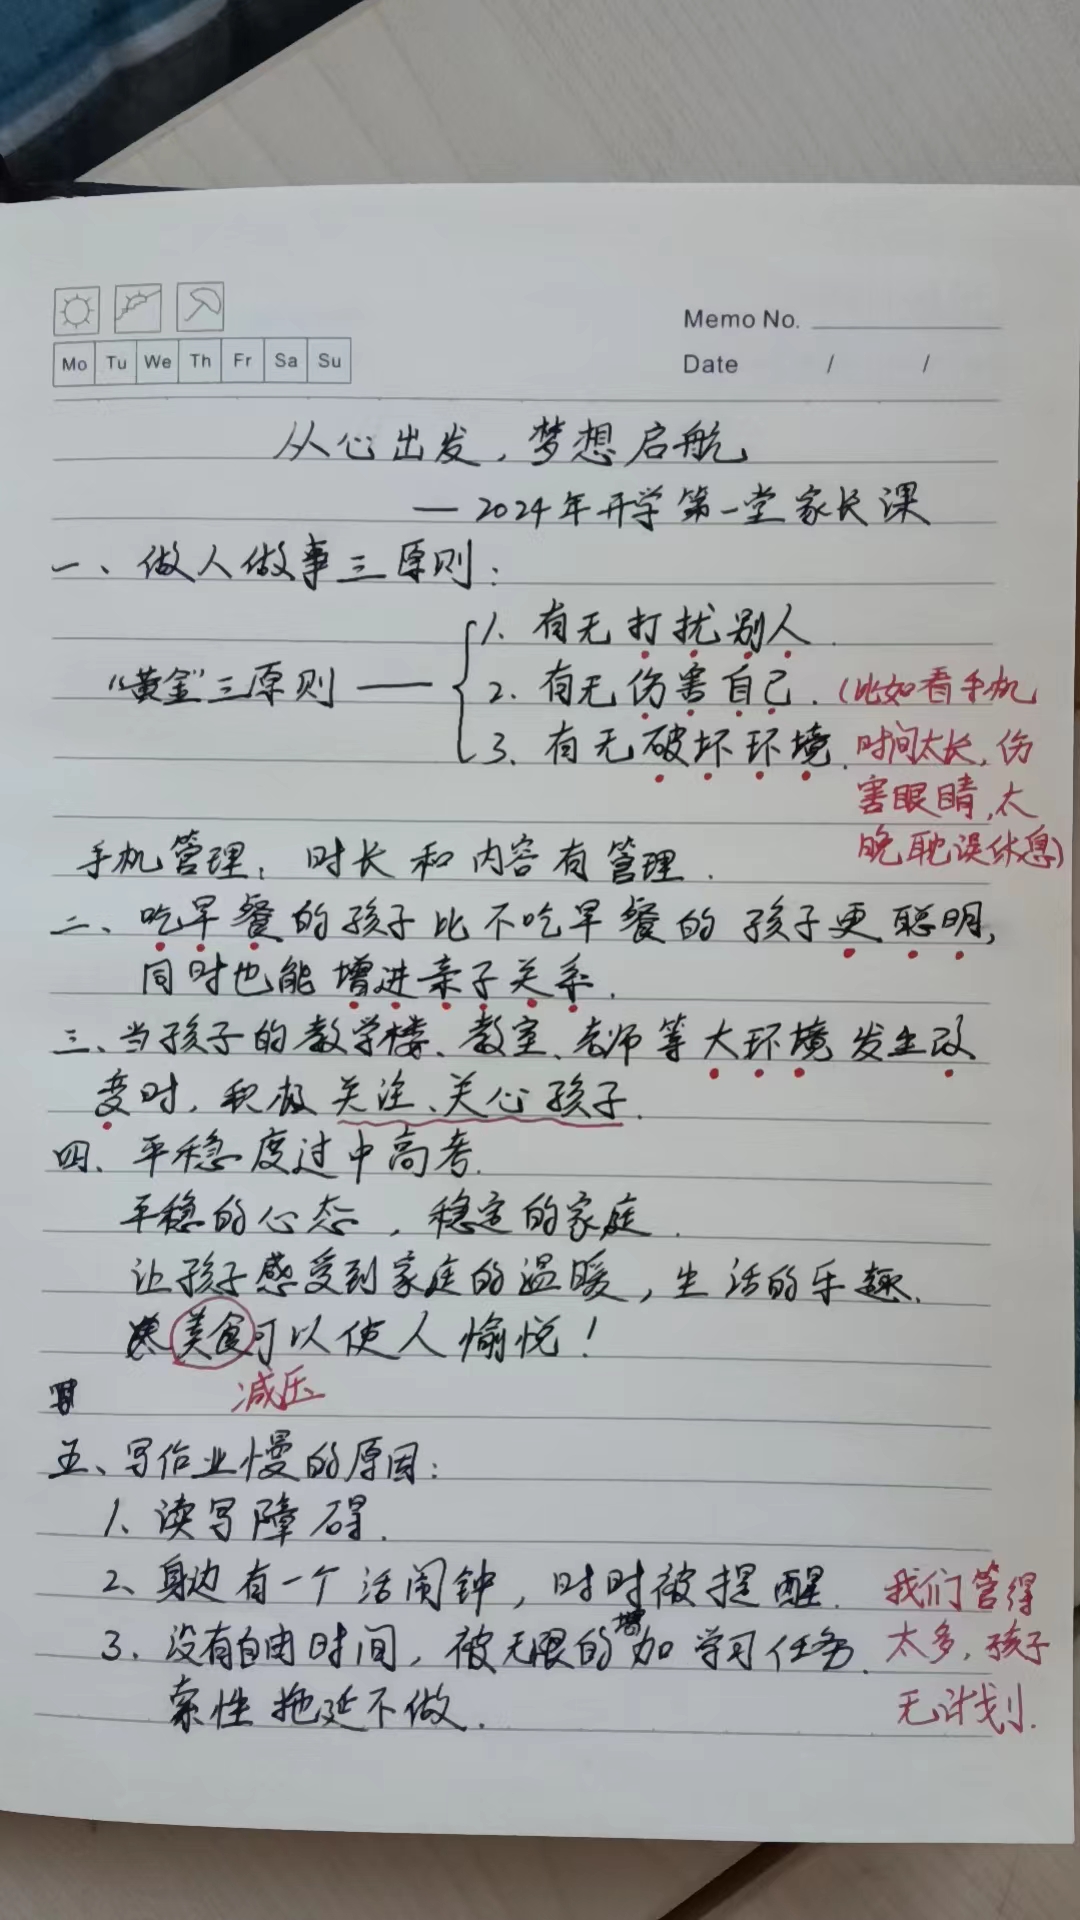 Mo Tu We Th Fr Sa Su
Memo No.
Date / /
从心出发，梦想启航
—2024年开学第一堂家长课
一、做人做事三原则：
“黄金”三原则——
1. 有无打扰别人.
2. 有无伤害自己.
3. 有无破坏环境.
(比如看手机
时间太长，伤
害眼睛，太
晚耽误休息)
手机管理：时长和内容有管理.
二、吃早餐的孩子比不吃早餐的孩子更聪明，
同时也能增进亲子关系.
三、当孩子的教学楼、教室、老师等大环境发生改
变时，积极关注、关心孩子.
四、平稳度过中高考.
平稳的心态，稳定的家庭.
让孩子感受到家庭的温暖，生活的乐趣.
美食可以使人愉悦！
减压
五、写作业慢的原因：
1、读写障碍.
2、身边有一个活闹钟，时时被提醒.
3、没有自由时间，被无限的增加学习任务.
索性拖延不做.
我们管得
太多，孩子
无计划.